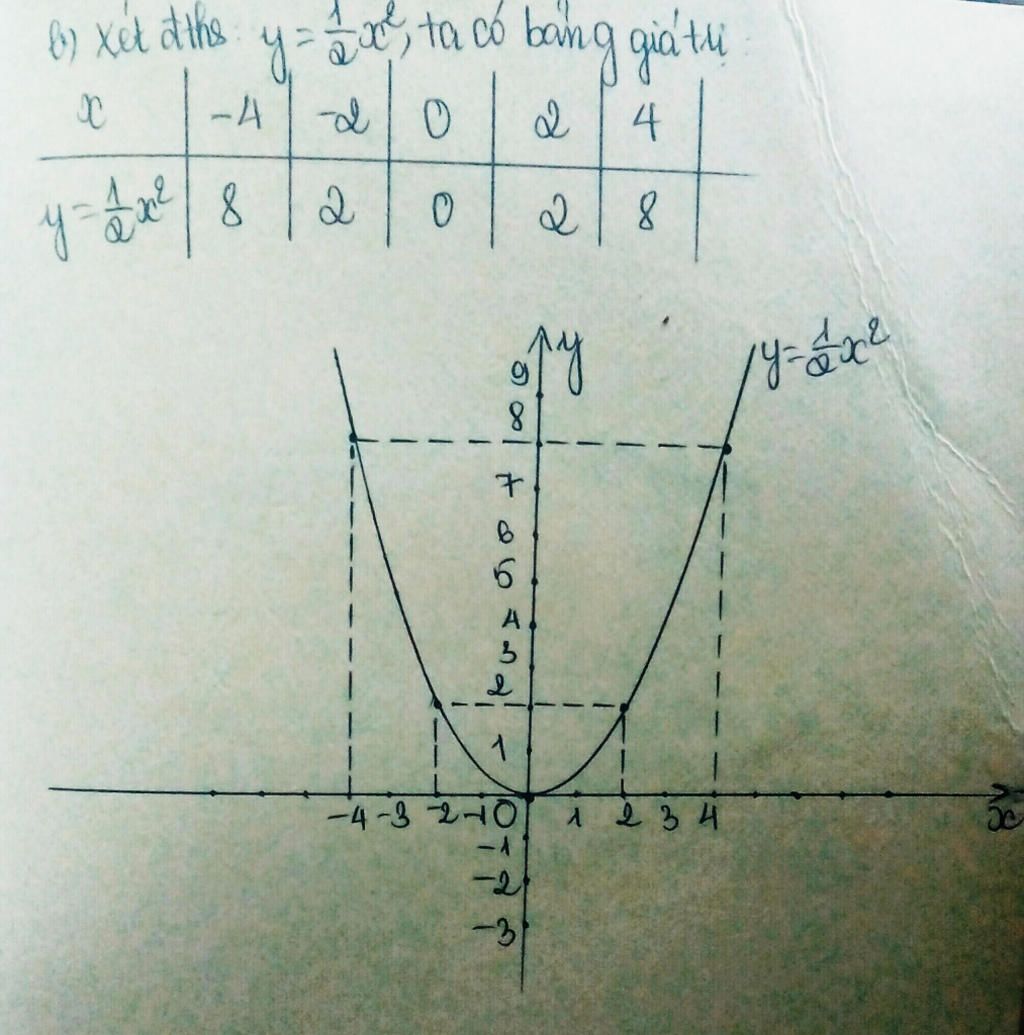 b) Xét đths: y = 1/2 x², ta có bảng giá trị:
x | -4 | -2 | 0 | 2 | 4
y = 1/2 x² | 8 | 2 | 0 | 2 | 8
y
y = 1/2 x²
9
8
7
6
5
4
3
2
1
-4 -3 -2 -1 0 1 2 3 4 x
-1
-2
-3